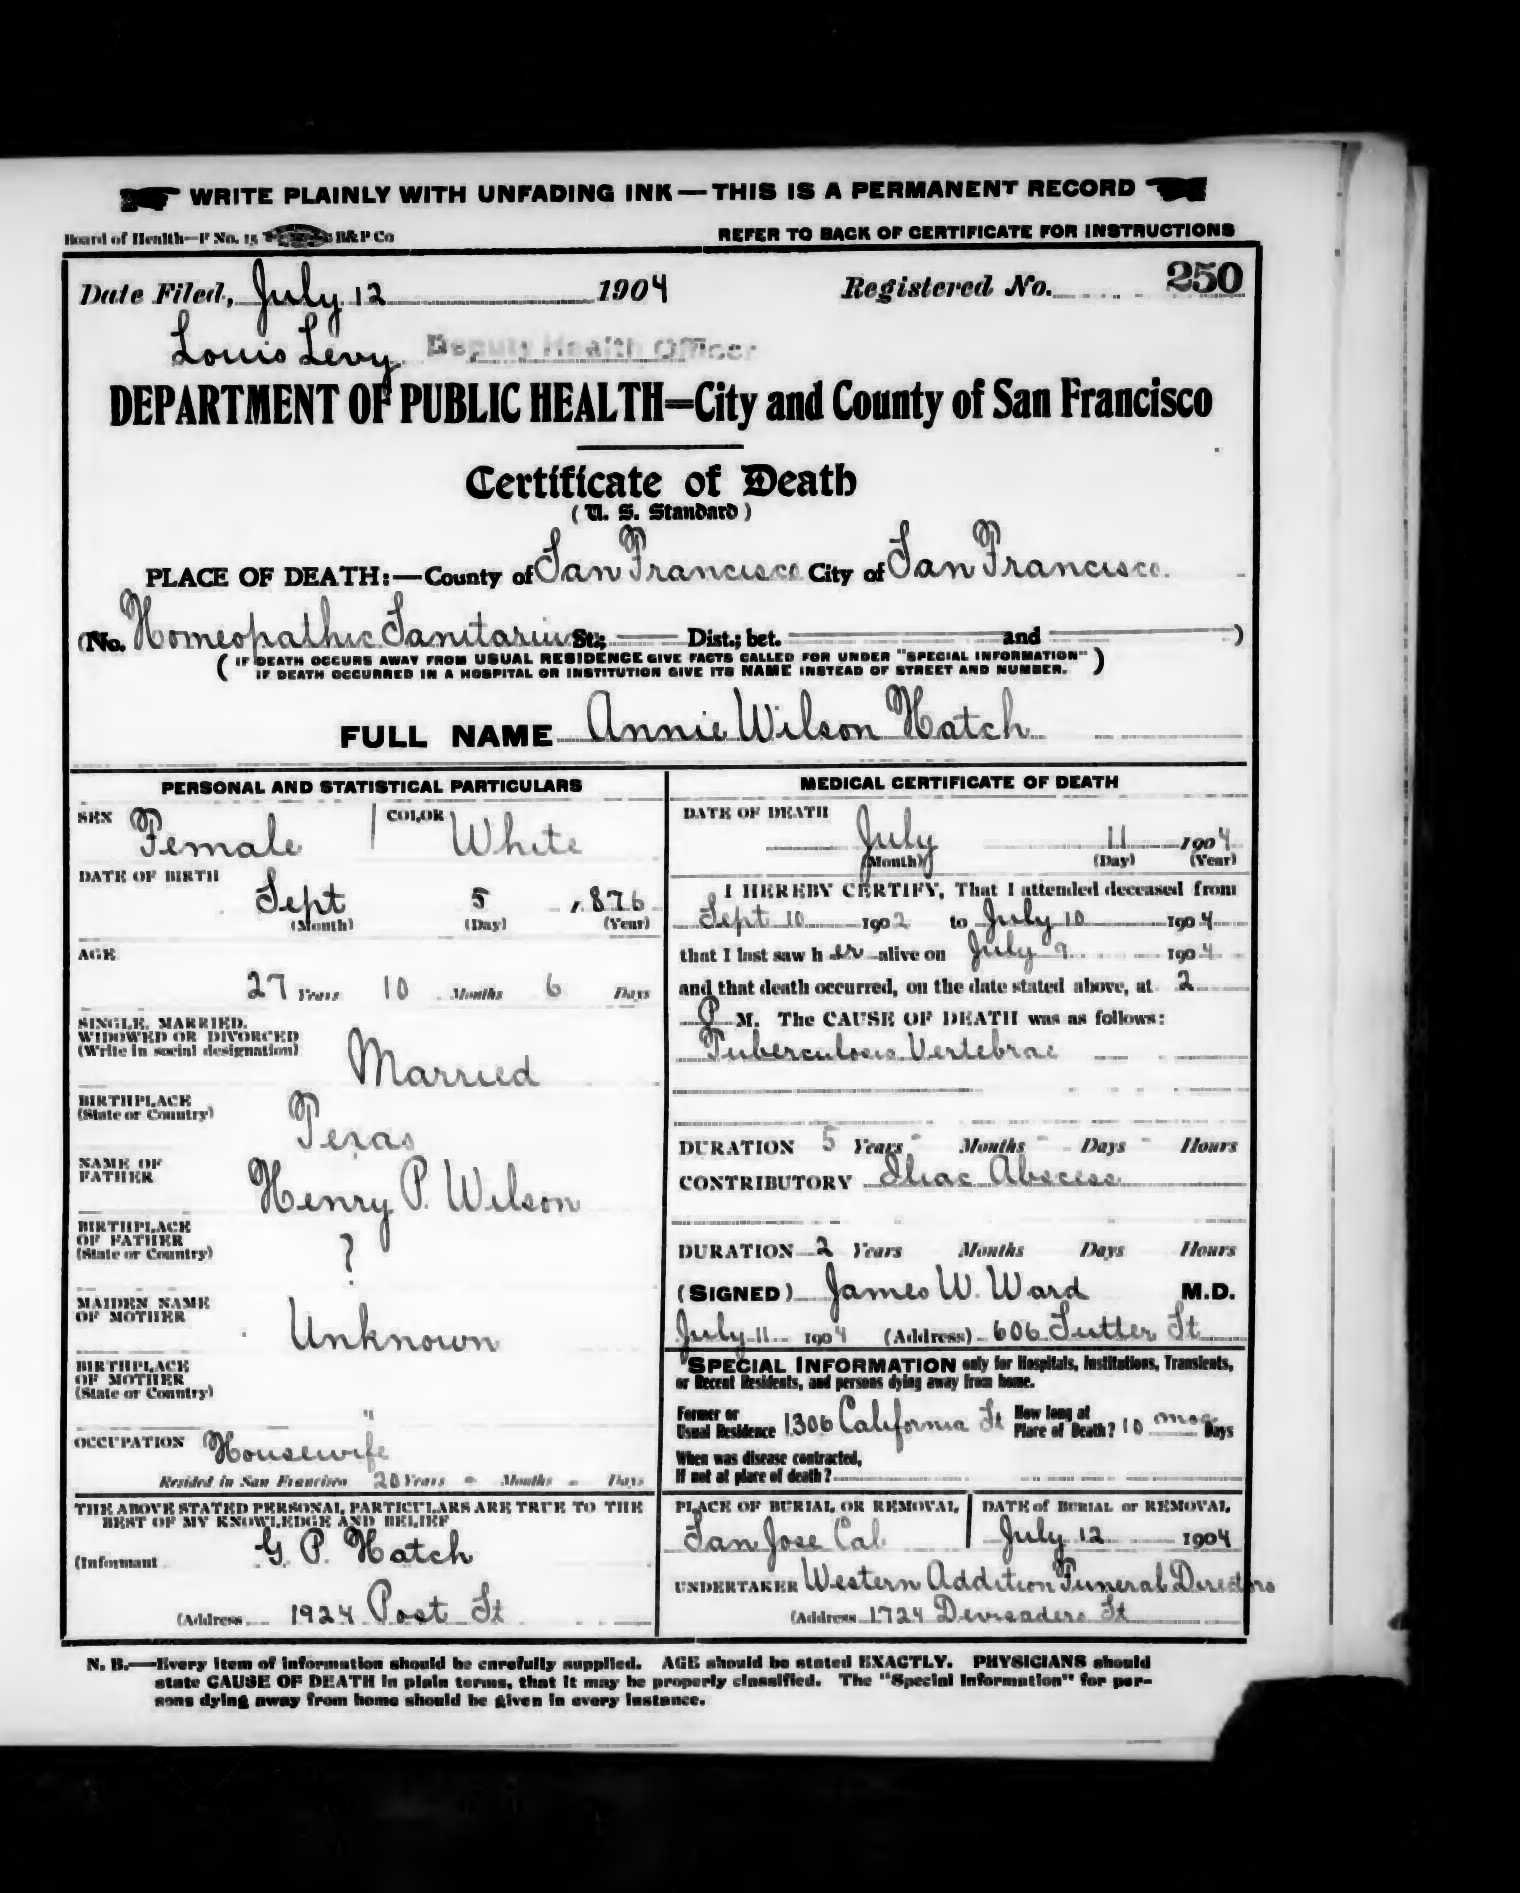 WRITE PLAINLY WITH UNFADING INK—THIS IS A PERMANENT RECORD
Board of Health—F No. 15 B&P Co REFER TO BACK OF CERTIFICATE FOR INSTRUCTIONS
Date Filed, July 12 1904 Registered No. 250
Louis Levy Deputy Health Officer
DEPARTMENT OF PUBLIC HEALTH=City and County of San Francisco
Certificate of Death
(U. S. Standard)
PLACE OF DEATH:—County of San Francisco City of San Francisco
(No. Homeopathic Sanitarium St.; Dist.; bet. and )
( IF DEATH OCCURS AWAY FROM USUAL RESIDENCE GIVE FACTS CALLED FOR UNDER "SPECIAL INFORMATION" )
IF DEATH OCCURRED IN A HOSPITAL OR INSTITUTION GIVE ITS NAME INSTEAD OF STREET AND NUMBER.
FULL NAME Annie Wilson Hatch
PERSONAL AND STATISTICAL PARTICULARS
SEX Female COLOR White
DATE OF BIRTH
Sept 5 , 876
(Month) (Day) (Year)
AGE
27 Years 10 Months 6 Days
SINGLE, MARRIED,
WIDOWED OR DIVORCED
(Write in social designation)
Married
BIRTHPLACE
(State or Country)
Texas
NAME OF
FATHER
Henry P. Wilson
BIRTHPLACE
OF FATHER
(State or Country)
?
MAIDEN NAME
OF MOTHER
Unknown
BIRTHPLACE
OF MOTHER
(State or Country)
"
OCCUPATION Housewife
Resided in San Francisco 20 Years - Months - Days
THE ABOVE STATED PERSONAL PARTICULARS ARE TRUE TO THE
BEST OF MY KNOWLEDGE AND BELIEF
(Informant G. P. Hatch
(Address 1924 Post St
MEDICAL CERTIFICATE OF DEATH
DATE OF DEATH
July 11 1904
(Month) (Day) (Year)
I HEREBY CERTIFY, That I attended deceased from
Sept 10 1902 to July 10 1904
that I last saw h er alive on July 9 1904
and that death occurred, on the date stated above, at 2
P M. The CAUSE OF DEATH was as follows:
Tuberculosis Vertebrae
DURATION 5 Years - Months - Days - Hours
CONTRIBUTORY Iliac Abscess
DURATION 2 Years Months Days Hours
(SIGNED) James W. Ward M.D.
July 11 1904 (Address) 606 Sutter St
SPECIAL INFORMATION only for Hospitals, Institutions, Transients,
or Recent Residents, and persons dying away from home.
Former or
Usual Residence 1306 California St How long at
Place of Death? 10 mos Days
When was disease contracted,
If not at place of death?
PLACE OF BURIAL OR REMOVAL DATE of BURIAL or REMOVAL
San Jose Cal July 12 1904
UNDERTAKER Western Addition Funeral Directors
(Address 1724 Devisadero St
N. B.—Every item of information should be carefully supplied. AGE should be stated EXACTLY. PHYSICIANS should
state CAUSE OF DEATH in plain terms, that it may be properly classified. The "Special Information" for per-
sons dying away from home should be given in every instance.